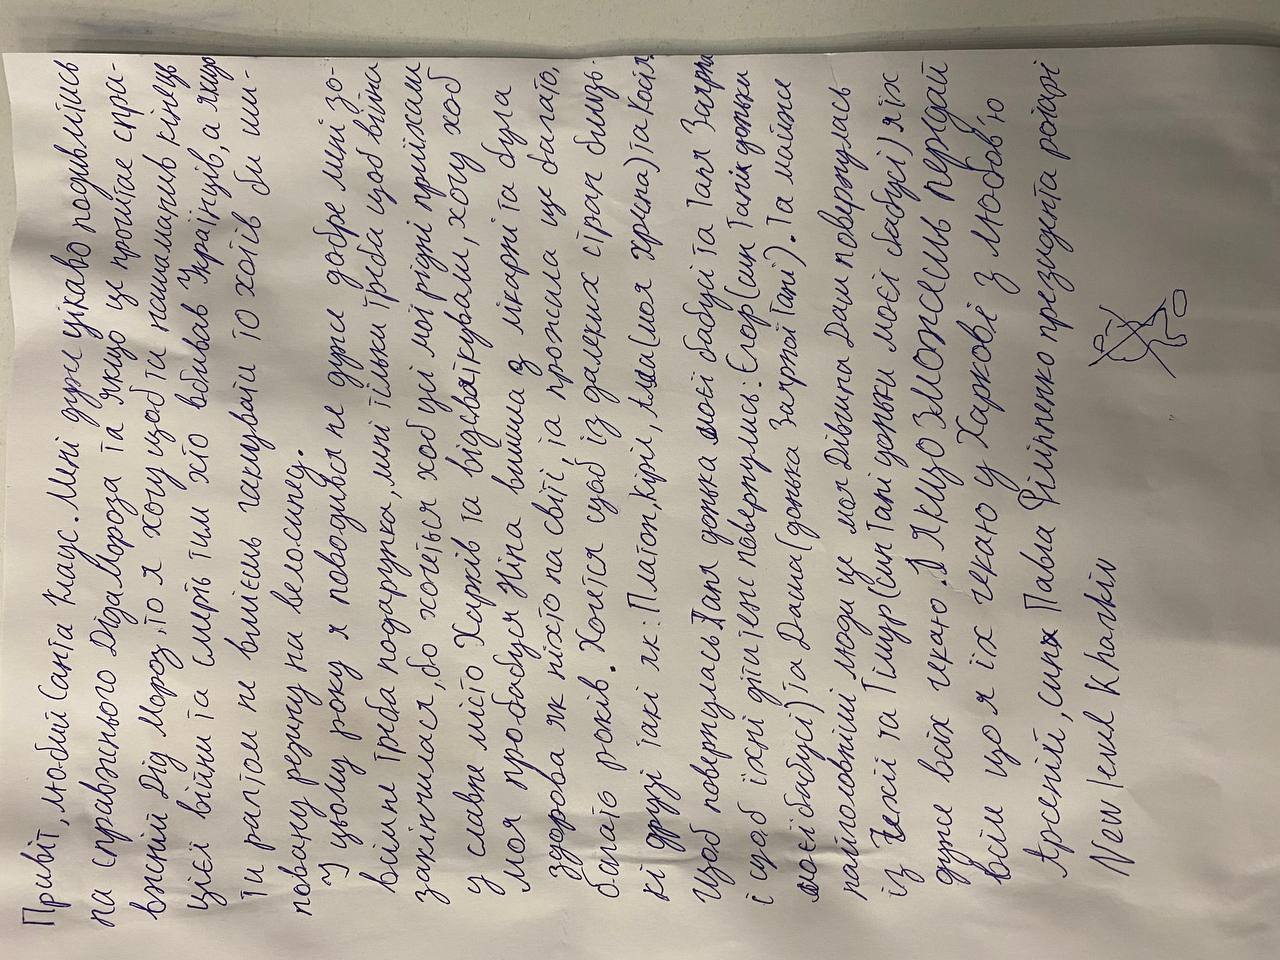 Привіт, любий Санта Клаус. Мені дуже цікаво подивитись
на справжнього Діда Мороза та якщо це прочітає спра-
вжний Дід Мороз, то я хочу щоб ти намалював кінець
цієї війни та смерть тим хто вбивав Українців, а якщо
Ти раптом не вмієєш чакцувати то хотів би ши-
повану резинку на велосипед.
У цьому року я поводився не дуже добре мені зо-
всім не треба подарунка, мені тільки треба щоб війна
закінчилася, бо хочеться хоб усі мої рідні приїхали
у славне місто Харків та відсвяткували, хочу хоб
моя пробабуся Ніна вишла з лікарні та була
здорова як ніхто на світі, та прожила ще багато,
багато років. Хочется щоб із далеких стран близь-
кі друзі такі як: Платон, Кіріл, (моя хрьосна) та Катя
щоб повернулась Таня донька моєї бабусі та Таня
і щоб їхні діти теж повернулись: Єгор (син Тані доньки
моєї бабусі) та Даша (донька Тані). Та майже
найголовніші люди це моя Дівчина Даша повернулась
із Чехії та Тімур (син Тані доньки моєї бабусі) я їх
дуже всіх чекаю. А якщо зможешь передай
всім що я їх чекаю у Харкові з любов'ю
Арсеній, сина Павла Філіпенко президента ротарі
New level Kharkiv